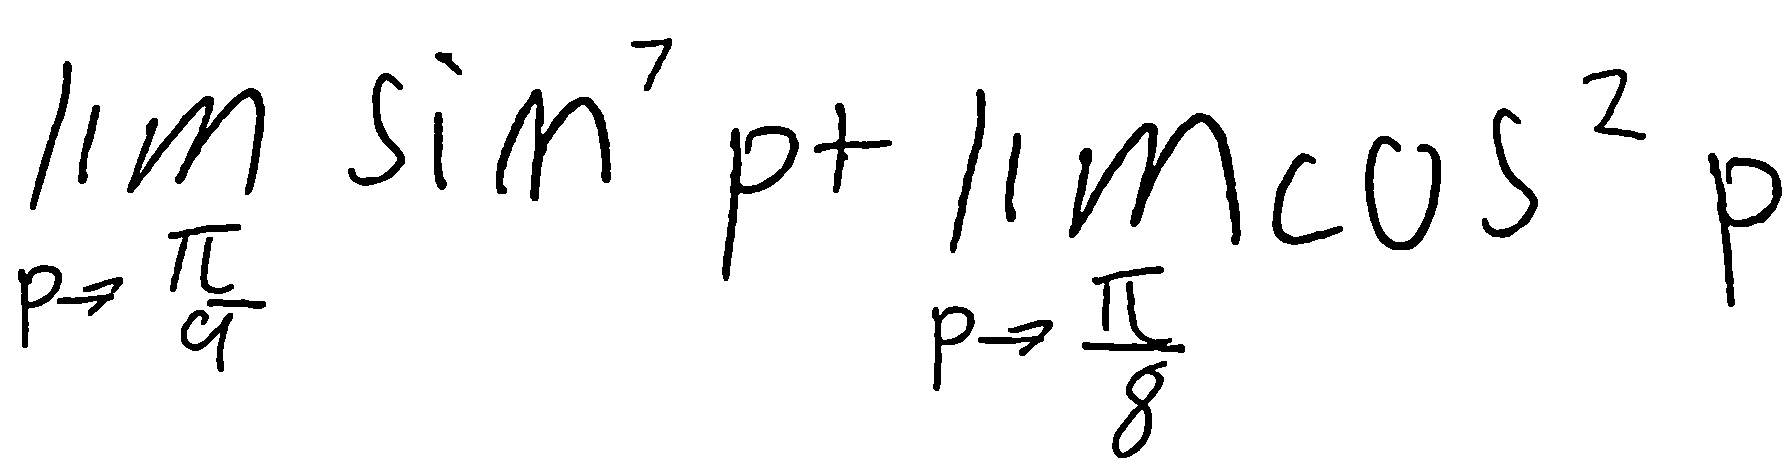 \lim_{p \to \frac{\pi}{9}} \sin^7 p + \lim_{p \to \frac{\pi}{8}} \cos^2 p